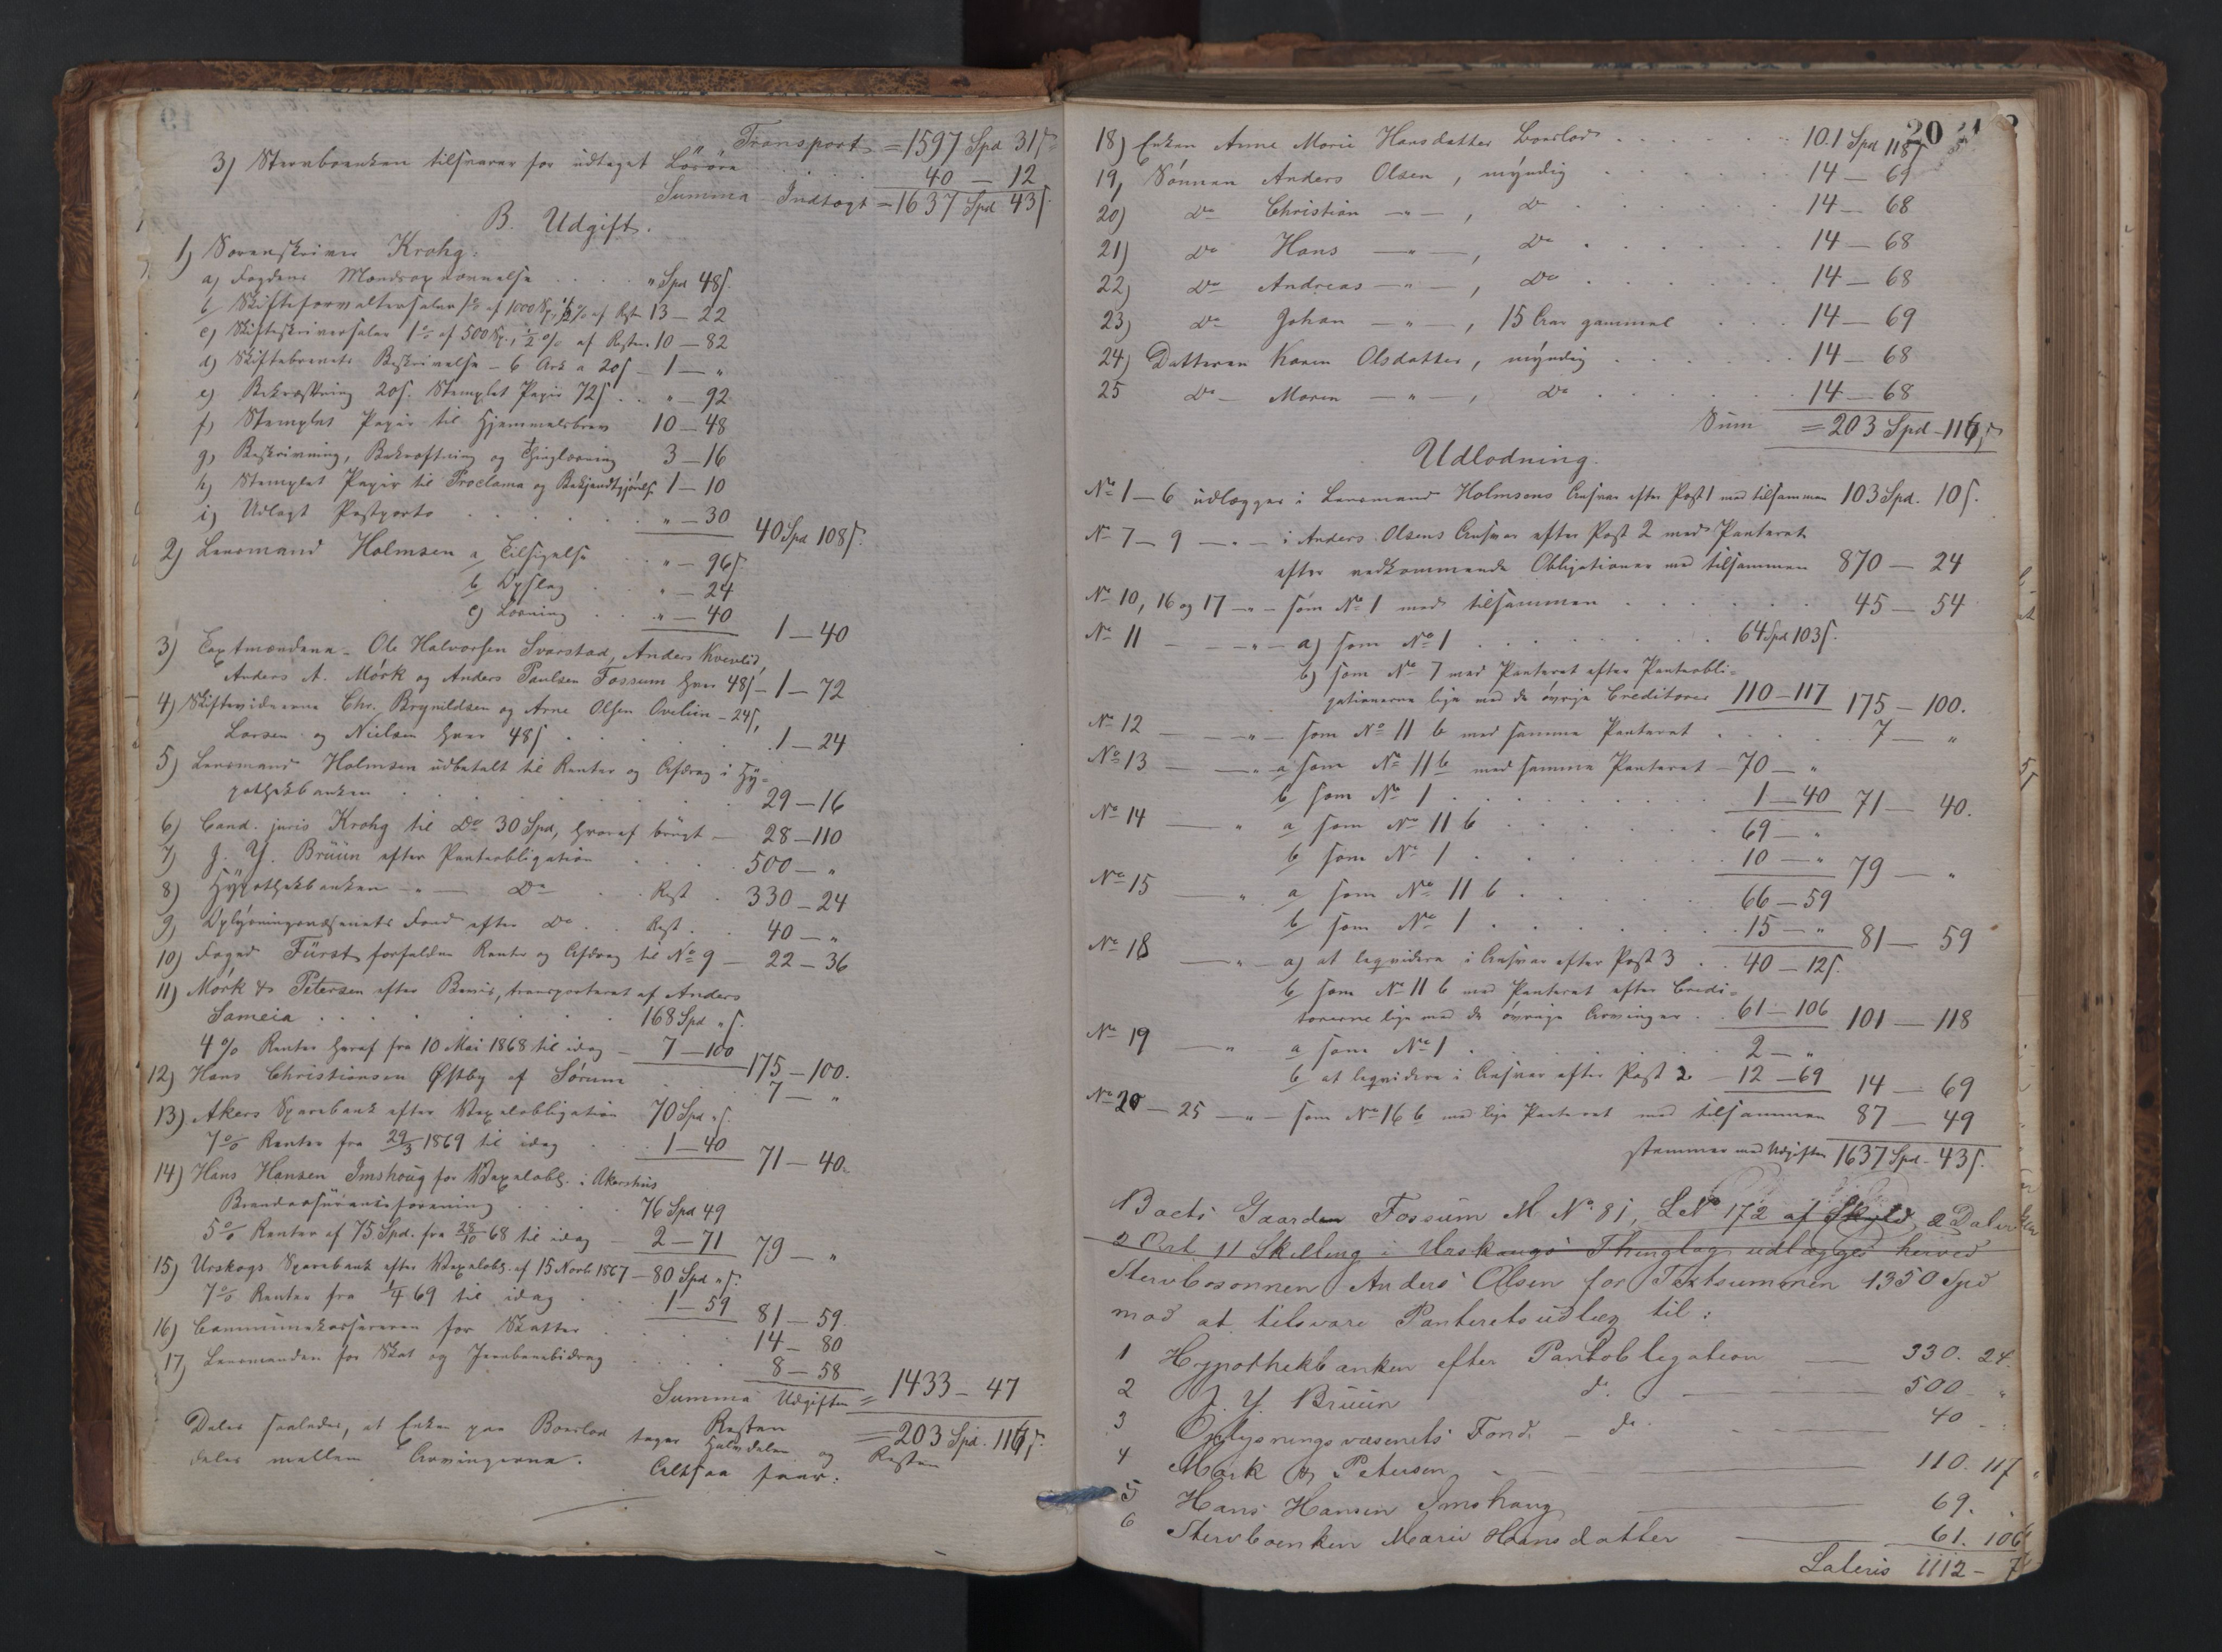 Transport = 1597 Spd 31ſ
3) Sterboenken tilsvarer for udtaget Løsøre . . . 40 — 12
Summa Indtægt = 1637 Spd 43ſ.
B. Udgift.
1) Sorenskriver Krohg:
a) Fogdens . . . „ Spd 48ſ.
b/ Skifteforvaltersalær 1% af 1000 Sp, ½% af Resten 13 — 22
c) Skifteskriversalær 1% af 500 Sp., ½% af Resten 10 — 82
d) Skiftebrevets Beskrivelse – 6 Ark a 20ſ – 1 — „
e) Bekræftning 20ſ. Stemplet Papir 72ſ . . „ — 92
f) Stemplet Papir til Hjemmelsbrev 10 — 48
g) Beskrivning, Bekræftning og Thinglæsning 3 — 16
h) Stemplet Papir til Proclama og Bekjendtgjørelse 1 — 10
i) Udlagt Postporto . . . „ — 30 40 Spd 108ſ.
2) Lensmand Holmsen a, Tilsigelse . . „ — 96ſ.
b Opslag . . „ — 24
c) Læsning . . „ — 40 1 — 40
3) Taxtmændene – Ole Halvorsen Svarstad, Anders Kverlid,
Anders A. Mørk og Anders Paulsen Fossum hver 48ſ – 1 — 72
4) Skiftevidnerne Chr. Brynildsen og Arne Olsen – 24ſ,
Larsen og Nielsen hver 48ſ . . . 1 — 24
5) Lensmand Holmsen udbetalt til Renter og Afdrag i Hy=
pothekbanken . . . 29 — 16
6) Cand. juris Krohg til Do 30 Spd, hvoraf brugt – 28 — 110
7) J. Y. Bruun efter Panteobligation . . . 500 — „
8) Hypothekbanken – „ — Do . . Rest . 330 — 24
9) Oplysningsvæsenets Fond efter Do . . Rest . . 40 — „
10) Foged Fürst forfaldne Renter og Afdrag til No 9 – 22 — 36
11) Mørk & Petersen efter Bevis, transporteret af Anders
Sameia . . . 168 Spd „ ſ.
4% Renter heraf fra 10 Mai 1868 til idag – 7 — 100 175 — 100.
12) Hans Christiansen Østby af Sørum . . . 7 — „
13) Akers Sparebank efter Vexelobligation 70 Spd „ ſ.
7% Renter fra 29/3 1869 til idag . . 1 — 40 71 — 40.
14) Hans Hansen Imshoug for Vexelobl. i Akershus
Brandassuranceforening . . . 76 Spd 49
5% Renter af 75 Spd. fra 28/10 68 til idag 2 — 71 79 — „
15) Urskogs Sparebank efter Vexelobl. af 15 Novb 1867 – 80 Spd „ ſ.
7% Renter fra 1/4 69 til idag . . 1 — 59 81 — 59.
16) Communekassereren for Skatter . . . 14 — 80
17) Lensmanden for Skat og . . . 8 — 58
Summa Udgifter = 1433 — 47
Resten = 203 Spd. 116ſ.
Deles saaledes, at Enken paa Boerlod tager Halvdelen og Resten
deles mellem Arvingerne. Altsaa faar:
20
18) Enken Anne Marie Hansdatter Boerlod . . . 101 Spd 118ſ
19) Sønnen Anders Olsen, myndig . . . 14 — 69
20) Do Christian — „ — , Do . . . 14 — 68
21) Do Hans — „ — , Do . . . 14 — 68
22) Do Andreas — „ — , Do . . . 14 — 68
23) Do Johan — „ — , 15 Aar gammel . . . 14 — 69
24) Datteren Karen Olsdatter, myndig . . . 14 — 68
25 Do Maren — „ — , Do . . . 14 — 68
Sum = 203 Spd – 116ſ
Udlodning.
No 1 — 6 udlægges i Lensmand Holmsens Ansvar efter Post 1 med tilsammen 103 Spd. 10ſ.
No 7 — 9 — „ — i Anders Olsens Ansvar efter Post 2 med Panteret
efter vedkommende Obligationer med tilsammen 870 — 24
No 10, 16 og 17 — „ — som No 1 med tilsammen . . . 45 — 54
No 11 — „ — a) som No 1 . . . 64 Spd 103ſ.
b) som No 7 med Panteret efter Panteobli=
gationerne lige med de øvrige Creditorer 110 — 117 175 — 100.
No 12 — „ — som No 11 b med samme Panteret . . . 7 — „
No 13 — „ a som No 11 b med samme Panteret – 70 — „
b som No 1 . . . 1 — 40 71 — 40.
No 14 — „ a som No 11 b . . . 69 — „
b som No 1 . . . 10 — „ 79 — „
No 15 — „ a som No 11 b . . . 66 — 59
b som No 1 . . . 15 — „ 81 — 59
No 18 — „ — a) at leqvidere i Ansvar efter Post 3 . . 40 — 12ſ.
b som No 11 b med Panteret efter Credi=
torerne lige med de øvrige Arvinger . 61 — 106 101 — 118
No 19 — „ a som No 1 . . . 2 — „
b at leqvidere i Ansvar efter Post 2 – 12 — 69 14 — 69
No 20 — 25 — „ — som No 16 b med lige Panteret med tilsammen 87 — 49
stemmer med Udgiften 1637 Spd. 43ſ.
Boets Gaarden Fossum M No 81, L No 172 af Skyld 2 Daler
2 Ort 11 Skilling i Urskougs Thinglag udlægges herved
Stervbosønnen Anders Olsen for Taxtsummen 1350 Spd
mod at tilsvare Panteretsudlæg til:
1 Hypothekbanken efter Pantobligation — 330. 24.
2 J. Y. Bruun d. — 500 – „
3 Oplysningsvæsenets Fond. – do. — 40 – „
4 Mørk & Petersen — 110. 117
5 Hans Hansen Imshaug — 69.
6 Stervboenken Marie Hansdatter — 61. 106
Lateris 1112 – 7